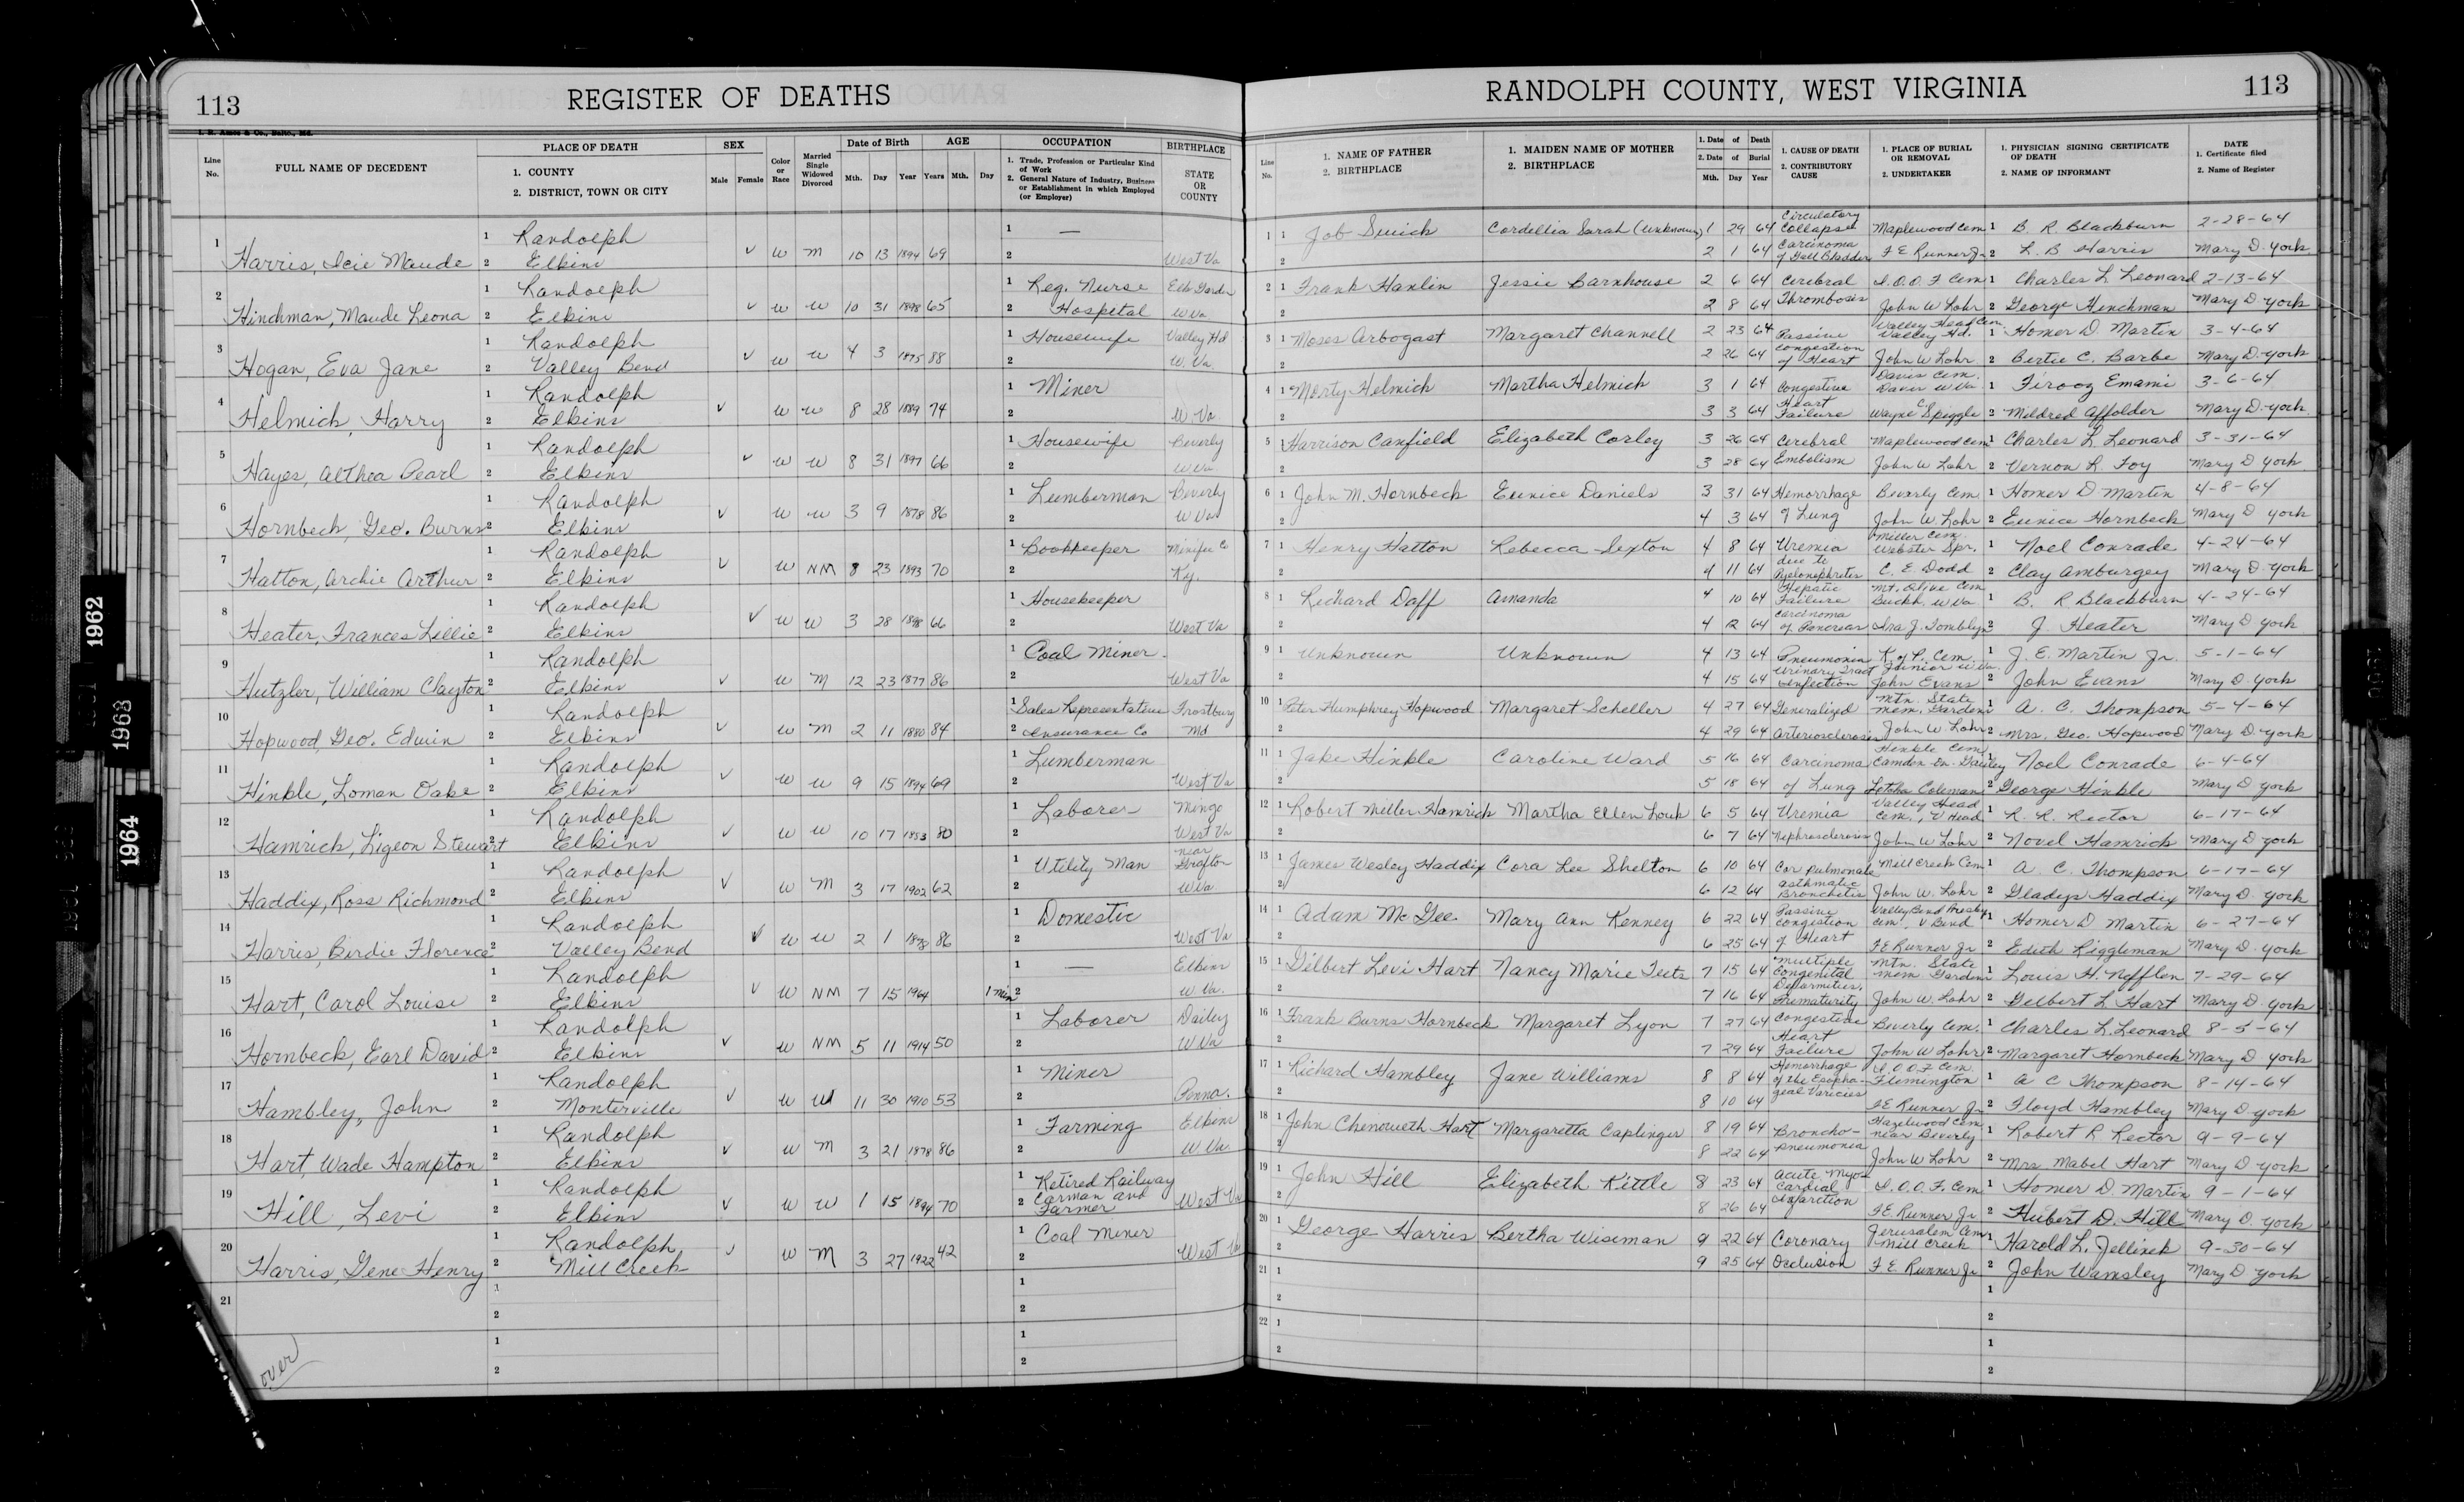 113
REGISTER OF DEATHS
RANDOLPH COUNTY, WEST VIRGINIA
113
Line No.
FULL NAME OF DECEDENT
PLACE OF DEATH
1. COUNTY
2. DISTRICT, TOWN OR CITY
SEX
Male Female
Color or Race
Married Single Widowed Divorced
Date of Birth
Mth. Day Year
AGE
Years Mth. Day
OCCUPATION
1. Trade, Profession or Particular Kind of Work
2. General Nature of Industry, Business or Establishment in which Employed (or Employer)
BIRTHPLACE
STATE OR COUNTY
Line No.
1. NAME OF FATHER
2. BIRTHPLACE
1. MAIDEN NAME OF MOTHER
2. BIRTHPLACE
1. Date of Death
2. Date of Burial
Mth. Day Year
1. CAUSE OF DEATH
2. CONTRIBUTORY CAUSE
1. PLACE OF BURIAL OR REMOVAL
2. UNDERTAKER
1. PHYSICIAN SIGNING CERTIFICATE OF DEATH
2. NAME OF INFORMANT
DATE
1. Certificate filed
2. Name of Register
1 Harris, Icie Maude 1 Randolph 2 Elkins ✓ W M 10 13 1894 69 1 — 2 West Va
1 1 Job Cordellia Sarah (Unknown) 1 29 64 Circulatory Collapse Maplewood Cem 1 B. R Blackburn 2-28-64
2 2 1 64 Carcinoma of Gall Bladder F E Runner Jr 2 L. B Harris Mary D. York
2 Hinchman, Maude Leona 1 Randolph 2 Elkins ✓ W W 10 31 1898 65 1 Reg. Nurse 2 Hospital Elk Garden W Va
2 1 Frank Hanlin Jessie Barnhouse 2 6 64 Cerebral I.O.O.F Cem 1 Charles L Leonard 2-13-64
2 2 8 64 Thrombosis John W Lohr 2 George Hinchman Mary D York
3 Hogan, Eva Jane 1 Randolph 2 Valley Bend ✓ W W 4 3 1875 88 1 Housewife 2 Valley Hd W. Va.
3 1 Moses Arbogast Margaret Channell 2 23 64 Passive Valley Head Cem Valley Hd. 1 Homer D Martin 3-4-64
2 2 26 64 Congestion of Heart John W Lohr 2 Bertie C. Barbe Mary D. York
4 Helmick, Harry 1 Randolph 2 Elkins ✓ W W 8 28 1889 74 1 Miner 2 W. Va
4 1 Morty Helmick Martha Helmick 3 1 64 Congestive Davis Cem. Davis W Va 1 Firooz Emami 3-6-64
2 3 3 64 Heart Failure Wayne C Spiggle 2 Mildred Affolder Mary D. York
5 Hayes, Althea Pearl 1 Randolph 2 Elkins ✓ W W 8 31 1897 66 1 Housewife 2 Beverly W Va.
5 1 Harrison Canfield Elizabeth Corley 3 26 64 Cerebral Maplewood Cem 1 Charles L Leonard 3-31-64
2 3 28 64 Embolism John W Lohr 2 Vernon R. Foy Mary D York
6 Hornbeck, Geo. Burns 1 Randolph 2 Elkins ✓ W W 3 9 1878 86 1 Lumberman 2 Beverly W Va
6 1 John M. Hornbeck Eunice Daniels 3 31 64 Hemorrhage Beverly Cem 1 Homer D Martin 4-8-64
2 4 3 64 of Lung John W Lohr 2 Eunice Hornbeck Mary D York
7 Hatton, Archie Arthur 1 Randolph 2 Elkins ✓ W NM 8 23 1893 70 1 Bookkeeper 2 Minifee Co Ky.
7 1 Henry Hatton Rebecca Sexton 4 8 64 Uremia Miller Cem. Webster Spr. 1 Noel Conrade 4-24-64
2 4 11 64 due to Pyelonephretes C. E Dodd 2 Clay Amburgey Mary D. York
8 Heater, Frances Lillie 1 Randolph 2 Elkins ✓ W W 3 28 1898 66 1 Housekeeper 2 West Va
8 1 Richard Daff Amanda 4 10 64 Hepatic Failure Mt. Olive Cem Buckh. W Va 1 B. R Blackburn 4-24-64
2 4 12 64 Carcinoma of Pancreas Ira J. Tomblyn 2 J. Heater Mary D York
9 Hutzler, William Clayton 1 Randolph 2 Elkins ✓ W M 12 23 1877 86 1 Coal Miner. 2 West Va
9 1 Unknown Unknown 4 13 64 Pneumonia K of P. Cem. Junior W. Va. 1 J. E. Martin Jr. 5-1-64
2 4 15 64 Urinary Tract Infection John Evans 2 John Evans Mary D. York
10 Hopwood, Geo. Edwin 1 Randolph 2 Elkins ✓ W M 2 11 1880 84 1 Sales Representative 2 Insurance Co Frostburg Md
10 1 Peter Humphrey Hopwood Margaret Scheller 4 27 64 Generalized Mtn. State Mem. Gardens 1 A. C. Thompson 5-4-64
2 4 29 64 Arteriosclerosis John W. Lohr 2 Mrs. Geo. Hopwood Mary D. York
11 Hinkle, Loman Oake 1 Randolph 2 Elkins ✓ W W 9 15 1894 69 1 Lumberman 2 West Va
11 1 Jake Hinkle Caroline Ward 5 16 64 Carcinoma Hinkle Cem Camden On Gauley Noel Conrade 6-4-64
2 5 18 64 of Lung Coleman 2 George Hinkle Mary D York
12 Hamrick, Ligeon Stewart 1 Randolph 2 Elkins ✓ W W 10 17 1883 80 1 Laborer 2 Mingo West Va
12 1 Robert Miller Hamrick Martha Ellen Louk 6 5 64 Uremia Valley Head Cem., V Head 1 R. R. Rector 6-17-64
2 6 7 64 Nephrosclerosis John W. Lohr 2 Novel Hamrick Mary D York
13 Haddix, Ross Richmond 1 Randolph 2 Elkins ✓ W M 3 17 1902 62 1 Utility Man 2 near Grafton W Va
13 1 James Wesley Haddix Cora Lee Shelton 6 10 64 Cor Pulmonale Mill Creek Cem 1 A C. Thompson 6-17-64
2 6 12 64 Asthmatic Bronchitis John W. Lohr 2 Gladys Haddix Mary D. York
14 Harris, Birdie Florence 1 Randolph 2 Valley Bend ✓ W W 2 1 1878 86 1 Domestic 2 West Va
14 1 Adam McGee Mary Ann Kenney 6 22 64 Passive Congestion Valley Bend Presby Cem., V Bend 1 Homer D Martin 6-27-64
2 6 25 64 of Heart F E Runner Jr 2 Edith Riggleman Mary D. York
15 Hart, Carol Louise 1 Randolph 2 Elkins ✓ W NM 7 15 1964 1 min 1 — 2 Elkins W. Va.
15 1 Delbert Levi Hart Nancy Marie Teets 7 15 64 Multiple Congenital Mtn. State Mem. Gardens 1 Louis H. Nefflen 7-29-64
2 7 16 64 Deformities, Prematurity John W. Lohr 2 Delbert L Hart Mary D. York
16 Hornbeck, Earl David 1 Randolph 2 Elkins ✓ W NM 5 11 1914 50 1 Laborer 2 Dailey W Va
16 1 Frank Burns Hornbeck Margaret Lyon 7 27 64 Congestive Beverly Cem. 1 Charles L. Leonard 8-5-64
2 7 29 64 Heart Failure John W Lohr 2 Margaret Hornbeck Mary D York
17 Hambley, John 1 Randolph 2 Monterville ✓ W W 11 30 1910 53 1 Miner 2 Penna.
17 1 Richard Hambley Jane Williams 8 8 64 Hemorrhage of the Esopha- I.O.O.F Cem Flemington 1 A C Thompson 8-14-64
2 8 10 64 geal Varicies F E Runner Jr 2 Floyd Hambley Mary D. York
18 Hart, Wade Hampton 1 Randolph 2 Elkins ✓ W M 3 21 1878 86 1 Farming 2 Elkins W Va
18 1 John Chenoweth Hart Margaretta Caplinger 8 19 64 Broncho- Hazelwood Cem near Beverly 1 Robert R Rector 9-9-64
2 8 22 64 Pneumonia John W Lohr 2 Mrs Mabel Hart Mary D York
19 Hill, Levi 1 Randolph 2 Elkins ✓ W W 1 15 1894 70 1 Retired Railway 2 Carman and Farmer West Va
19 1 John Hill Elizabeth Kittle 8 23 64 Acute Myo- cardial I.O.O.F. Cem 1 Homer D Martin 9-1-64
2 8 26 64 Infarction F E. Runner Jr 2 Hubert D. Hill Mary D. York
20 Harris, Gene Henry 1 Randolph 2 Mill Creek ✓ W M 3 27 1922 42 1 Coal Miner 2 West Va
20 1 George Harris Bertha Wiseman 9 22 64 Coronary Jerusalem Cem Mill Creek 1 Harold L. Jellinek 9-30-64
2 9 25 64 Occlusion F E. Runner Jr 2 John Wamsley Mary D York
21 1
2
1
2
21 1
2
22 1
2
over
1962
1963
1964